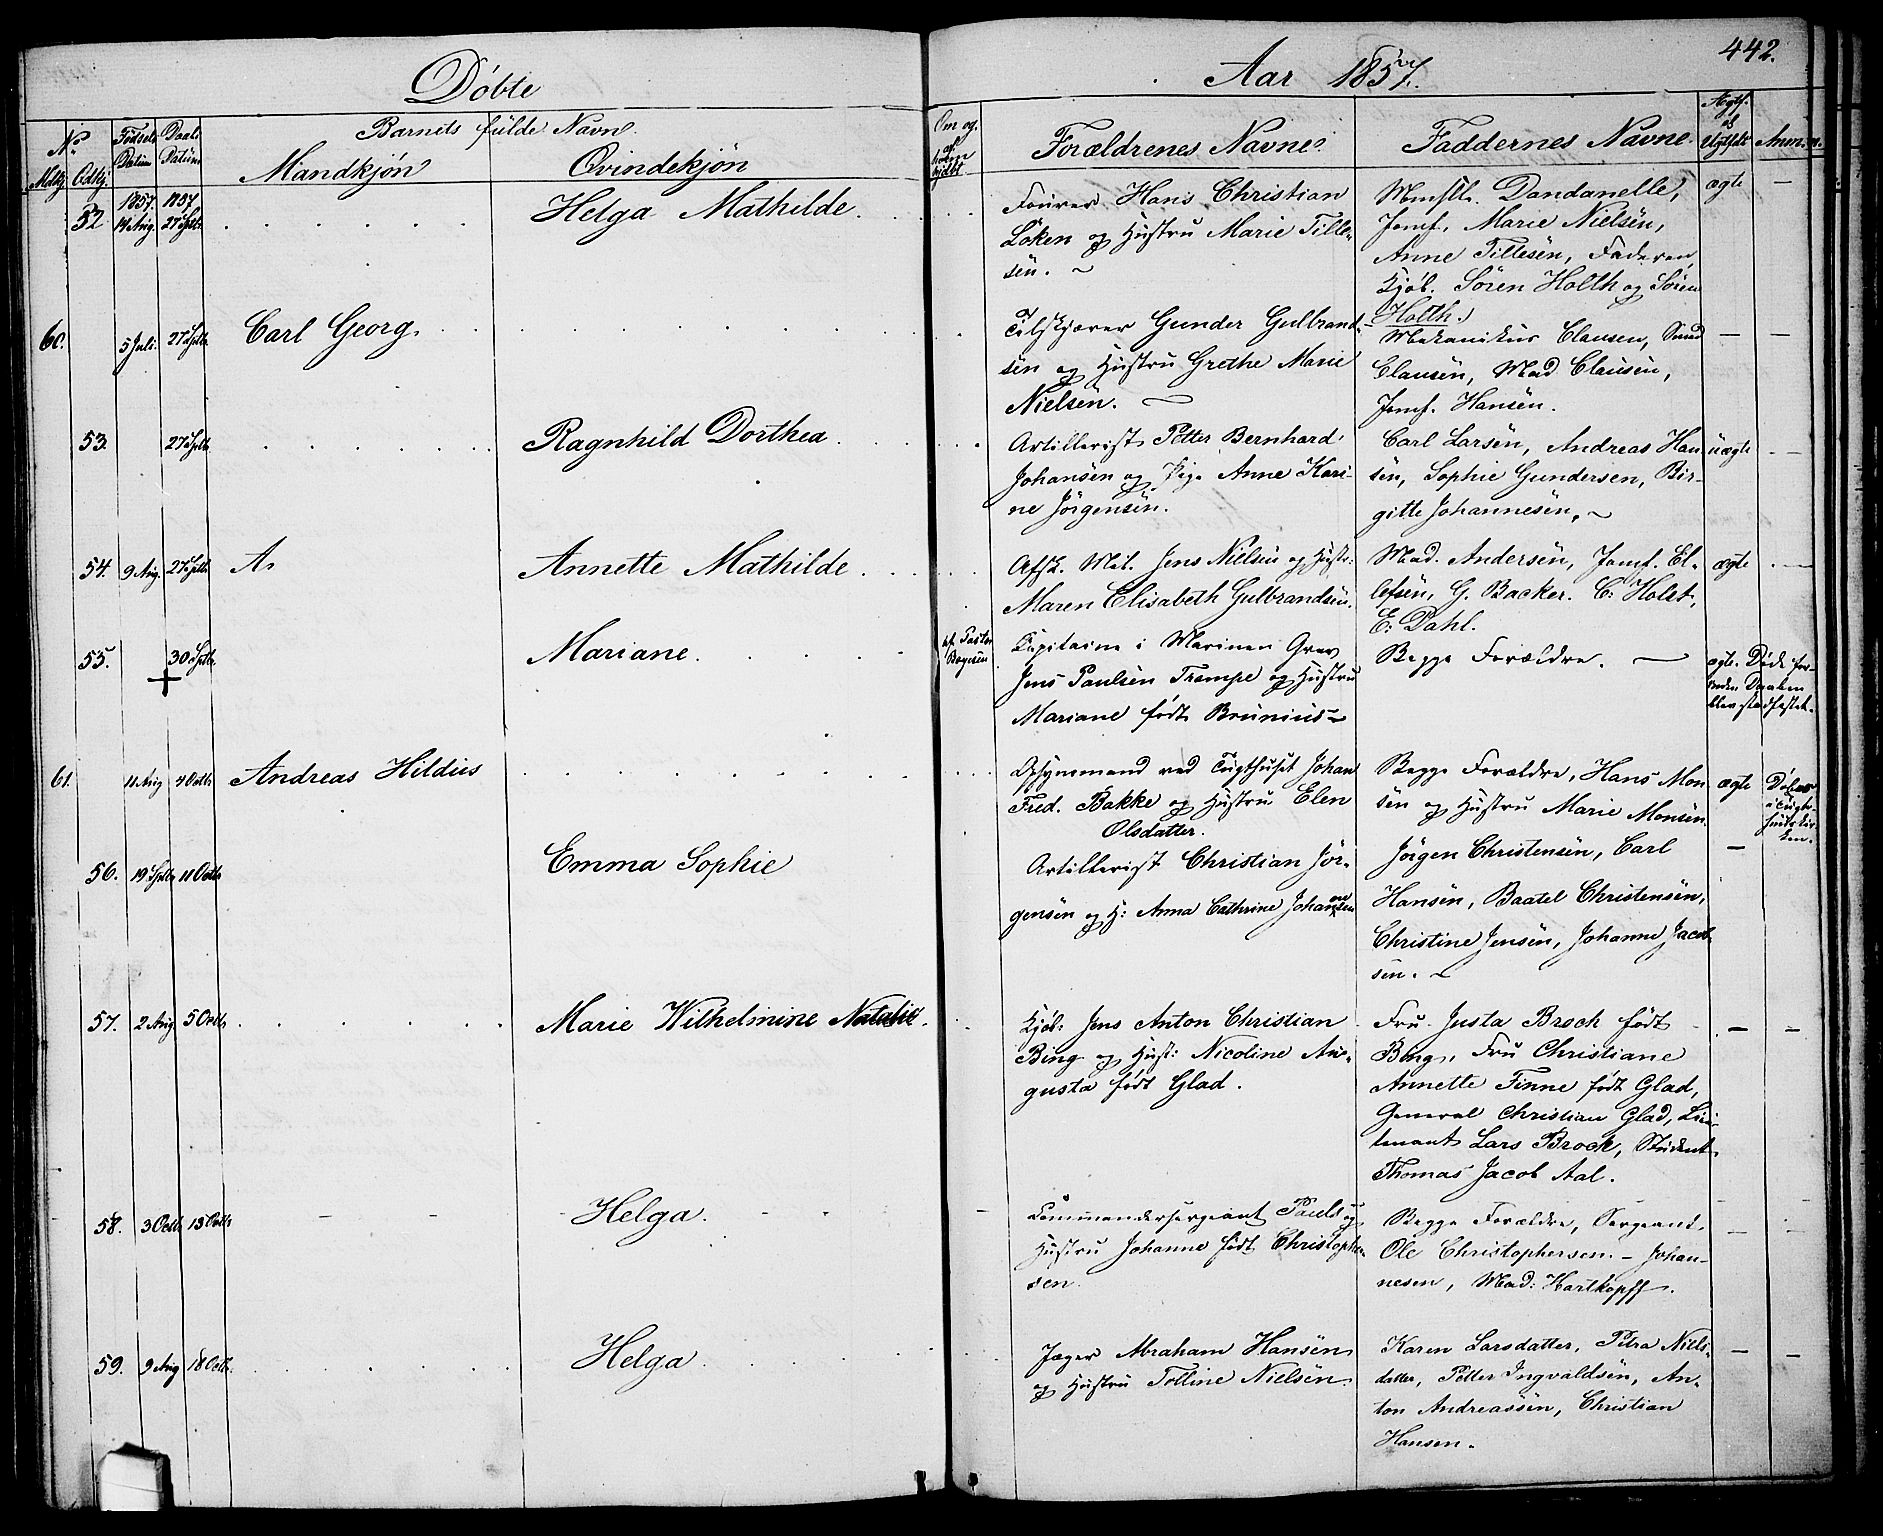 442.
Døbte
Aar 1857.
No
Mdkj. Qdkj.
Fødsels Datum
Daabs Datum
Barnets fulde Navn.
Mandkjøn
Qvindekjøn
Om og af hvem hjdbt.
Forældrenes Navne.
Faddernes Navne.
Ægte el. Uægtefødt
Anm.
1857. 1857.
52 14 Aug. 27 Sptb. Helga Mathilde.
Fourer Hans Christian
Løken og Hustru Marie Tille-
sen.
Dandanelle,
Jomf. Marie Nielsen,
Anne Tillesen, Faderen,
Kjøb. Søren Holth og Søren
Holth.
ægte —
60. 5 Juli. 27 Sptb. Carl Georg.
Gunder Gulbrand-
sen og Hustru Grethe Marie
Nielsen.
Mekanikus Clausen, Smed
Clausen, Mad Clausen,
Jomf. Hansen.
— —
53. 27 Sptb. Ragnhild Dorthea.
Artillerist Petter Bernhard
Johansen og Pige Anne Kari-
ne Jørgensen.
Carl Larsen, Andreas Han
sen, Sophie Gundersen, Bir-
gitte Johannesen.
uægte —
54. 9 Aug. 27 Sptb. A. Annette Mathilde.
Afsk. Mil. Jens Nielsen og Hustr:
Maren Elisabeth Gulbrandsen.
Mad. Andersen, Jomf. El-
lefsen, G. Backer. C. Holst,
E: Dahl.
ægte —
55. + 30 Sptb. Mariane.
af Pastor Bogesen
Capitaine i Marinen Grev
Jens Paulsen Trampe og Hustru
Mariane født Brunius
Begge Forældre.
ægte. Døde for-
inden Daaben
blev stadfæstet.
61. 11 Aug 4 Octb Andreas Hildus
Opsynsmand ved Tugthuset Johan
Fred. Bakke og Hustru Elen
Olsdatter.
Begge Forældre, Hans Mon
sen og Hustru Marie Monsen.
ægte Døbt
i Tugt-
huskir-
ken.
56. 19 Sptb 11 Octb Emma Sophie
Artillerist Christian Jør-
gensen og H: Anna Cathrine Johansen
Jørgen Christensen, Carl
Hansen, Baatel Christensen,
Christine Jensen, Johanne Jacob
sen.
—
57. 2 Aug 5 Octb Marie Wilhelmine Natalie.
Kjøb: Jens Anton Christian
Bing og Hust: Nicoline Au-
gusta født Glad.
Fru Justa Brock født
Bing, Fru Christiane
Annette Finne født Glad,
General Christian Glad, Lieu-
tenant Lars Brock, Student
Thomas Jacob Aal.
— —
58. 3 Octb 13 Octb Helga.
Commandersergeant Pauls og
Hustru Johanne født Christophe-
sen.
Begge Forældre, Sergeant
Ole Christophersen. – Johan-
nesen, Mad: Hartkopff.
— —
59. 9 Aug 18 Octb. Helga.
Jæger Abraham Hansen
og Hustru Tolline Nielsen.
Karen Larsdatter, Petra Niels-
datter, Petter Ingvaldsen, An-
ton Andreassen, Christian
Hansen.
— —